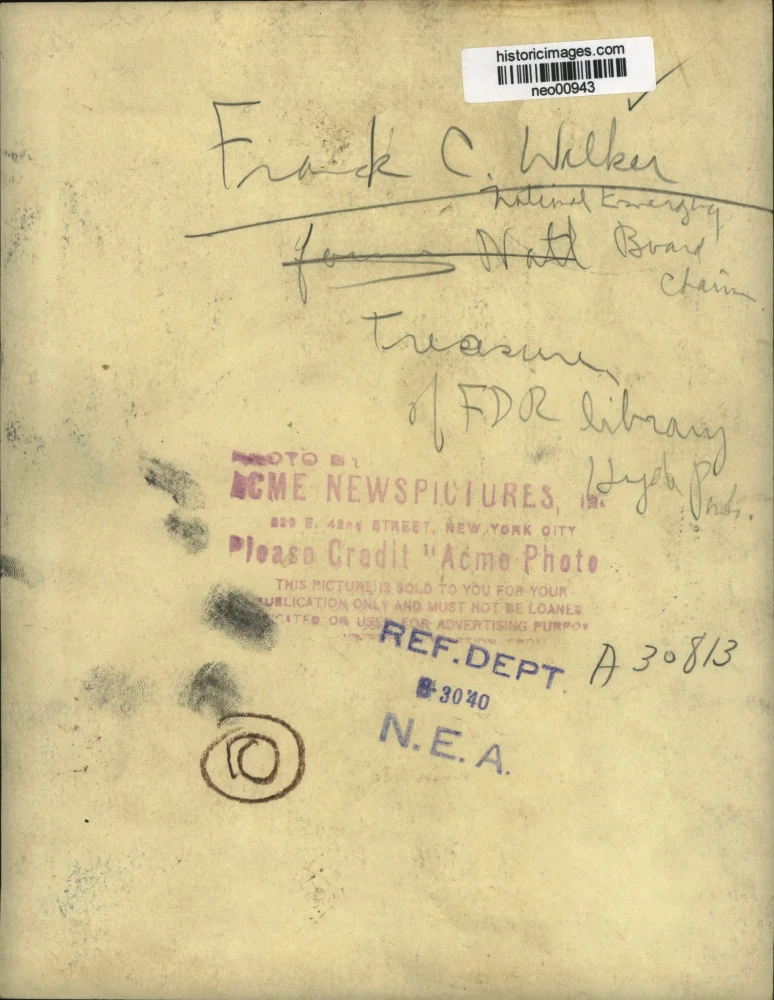 historicimages.com
neo00943
Frank C. Walker
National Emergency
Natl Board
Chairm
Treasurer
of FDR library
Hyde Park.
PHOTO BY
ACME NEWSPICTURES, INC.
220 E. 42nd STREET, NEW YORK CITY
Please Credit "Acme Photo
THIS PICTURE IS SOLD TO YOU FOR YOUR
PUBLICATION ONLY AND MUST NOT BE LOANED
OR USED FOR ADVERTISING PURPOS
REF. DEPT.
30'40
A 30813
N.E.A.
10